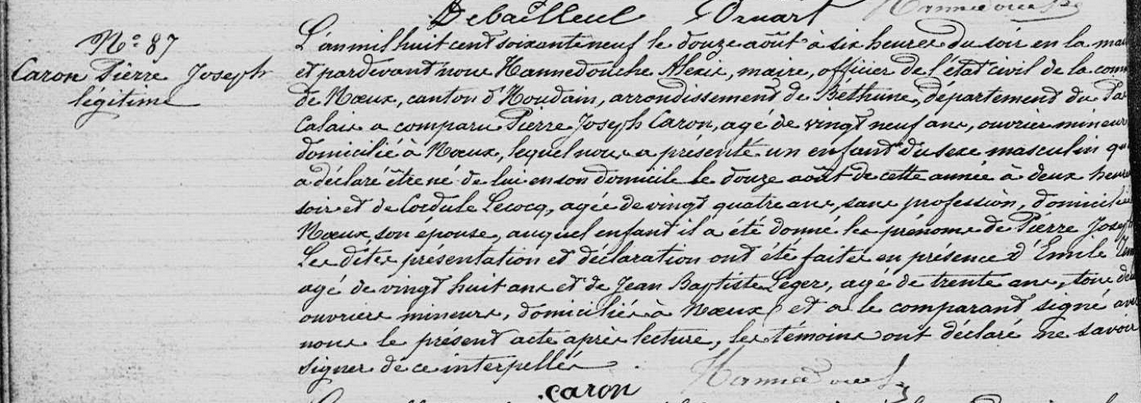 Debailleul Druart Hannedouche
N° 87
Caron Pierre Joseph
légitime
L'an mil huit cent soixante neuf le douze août à six heures du soir en la mai
et pardevant nous Hannedouche Alexis, maire, officier de l'état civil de la comm
de Nœux, canton d'Houdain, arrondissement de Béthune, département du Pas
Calais a comparu Pierre Joseph Caron, agé de vingt neuf ans, ouvrier mineur
domicilié à Nœux, lequel nous a présenté un enfant du sexe masculin qu
a déclaré être né de lui en son domicile le douze août de cette année à deux heures
soir et de Cordule Lecocq, agée de vingt quatre ans, sans profession, domiciliée
Nœux, son épouse, auquel enfant il a été donné les prénoms de Pierre Joseph
Les dites présentation et déclaration ont été faites en présence d'Emile
agé de vingt huit ans et de Jean Baptiste Léger, agé de trente ans, tous deux
ouvriers mineurs, domiciliés à Nœux et a le comparant signé avec
nous le présent acte après lecture, les témoins ont déclaré ne savoir
signer de ce interpellés.
caron Hannedouche